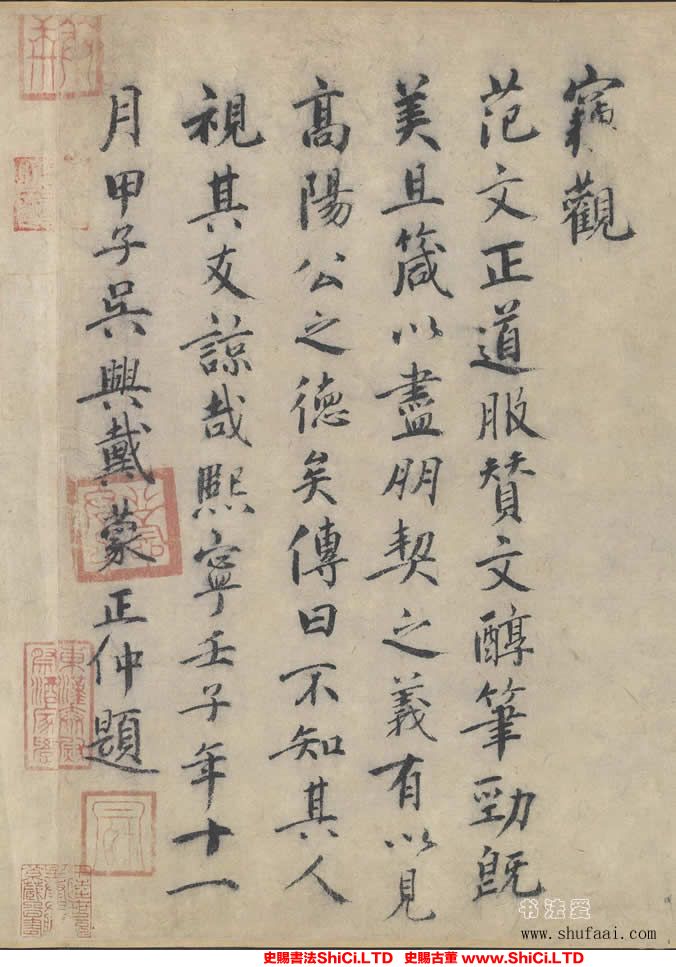 竊觀
范文正道服贊文醇筆勁既
美且箴以盡朋契之義有以見
高陽公之德矣傳曰不知其人
視其友諒哉熙寧壬子年十一
月甲子吳興戴蒙正仲題
书法爱
www.shufaai.com
史賜書法ShiCi.LTD 史賜古董 www.ShiCi.LTD